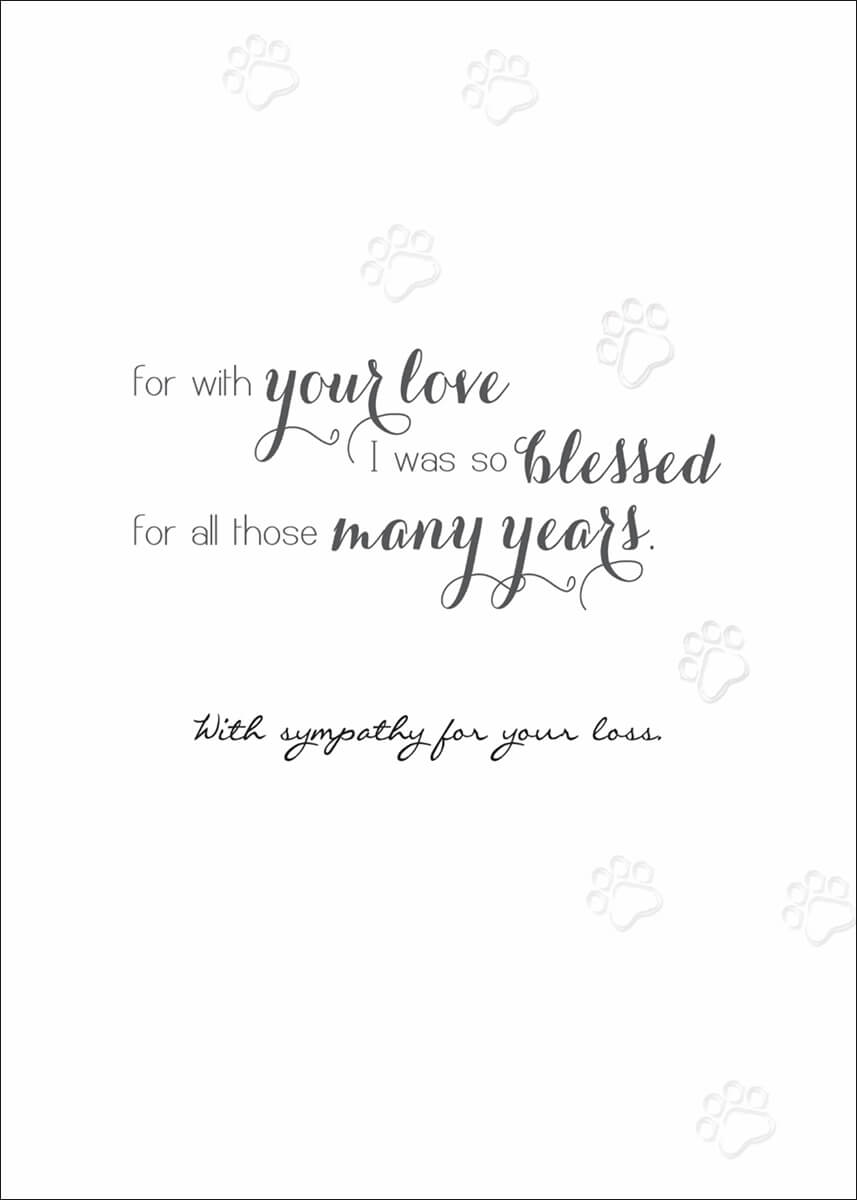 for with your love
I was so blessed
for all those many years.
With sympathy for your loss.